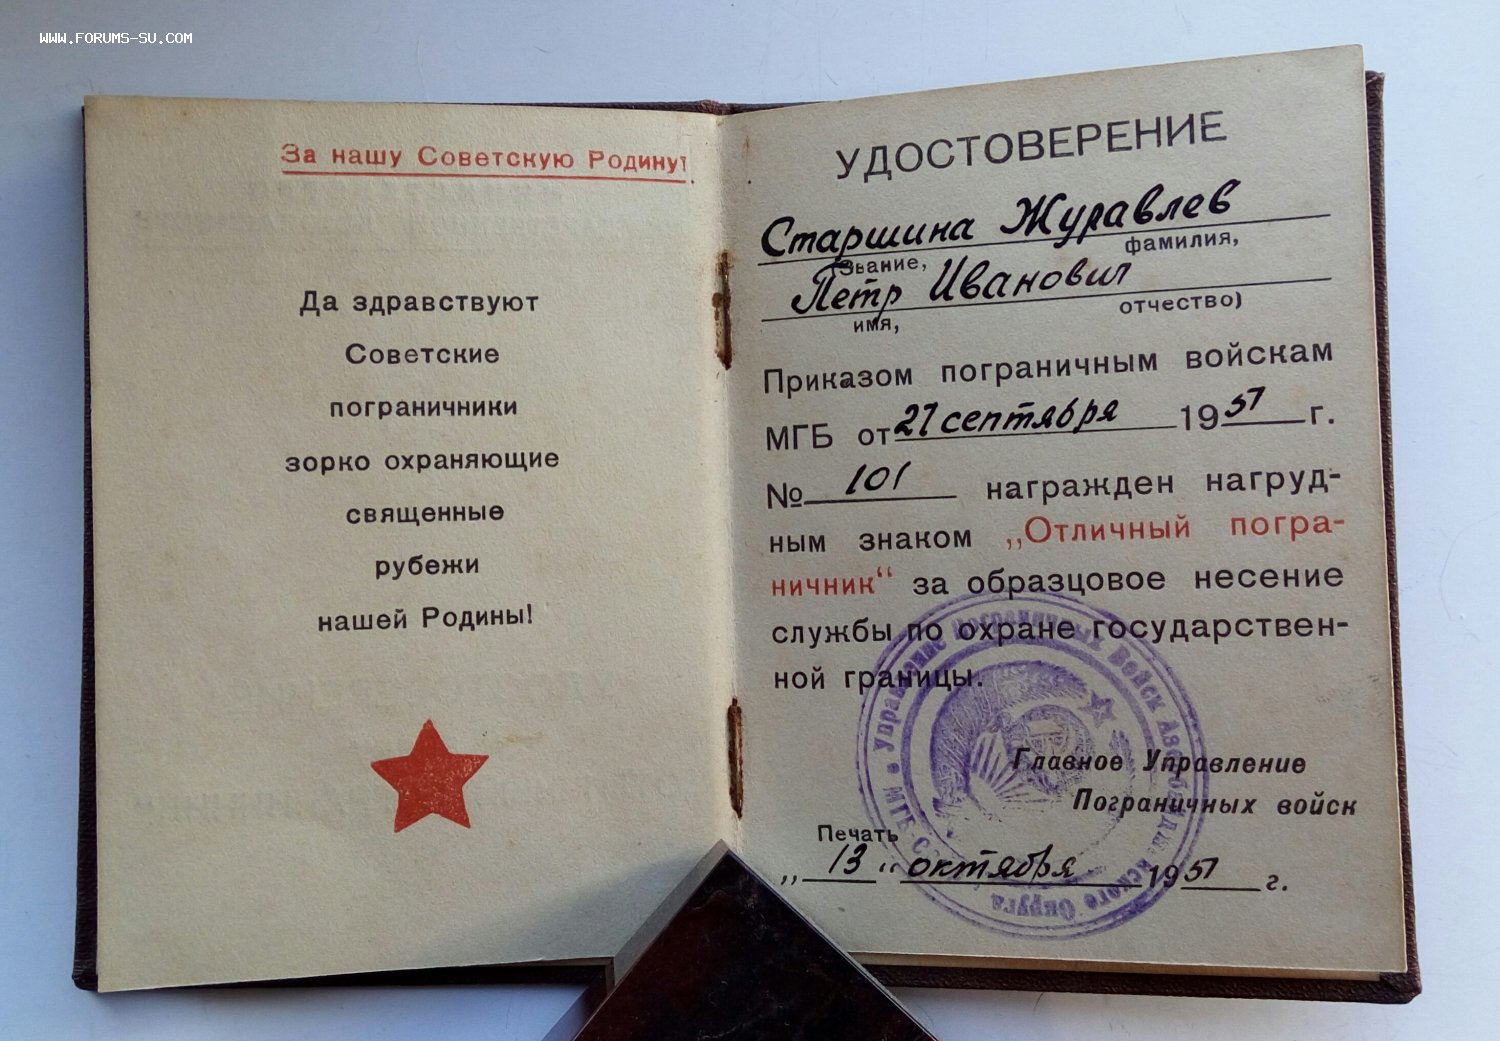 WWW.FORUMS-SU.COM
За нашу Советскую Родину!
Да здравствуют
Советские
пограничники
зорко охраняющие
священные
рубежи
нашей Родины!
УДОСТОВЕРЕНИЕ
Старшина Журавлев
(Звание, фамилия,
Петр Иванович
имя, отчество)
Приказом пограничным войскам
МГБ от 27 сентября 1951 г.
№ 101 награжден нагруд-
ным знаком „Отличный погра-
ничник“ за образцовое несение
службы по охране государствен-
ной границы.
Главное Управление
Пограничных войск
Печать
„13“ октября 1951 г.
Управление Пограничных Войск Азербайджанского Округа МГБ